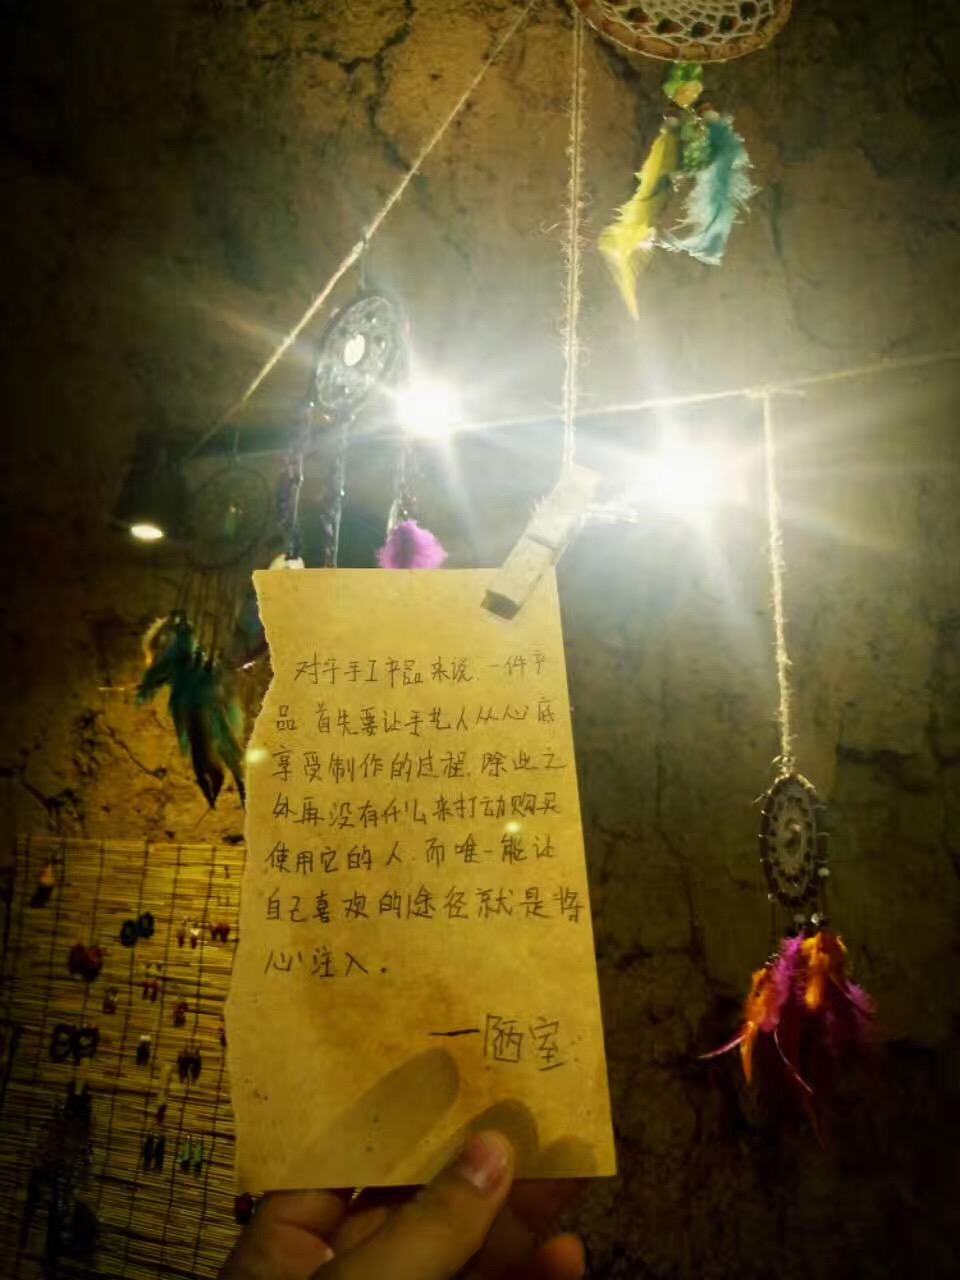 对于手工产品来说.一件产
品.首先要让手艺人从心底
享受制作的过程.除此之
外再没有什么来打动购买
使用它的人.而唯一能让
自己喜欢的途径就是将
心注入.
一陋室